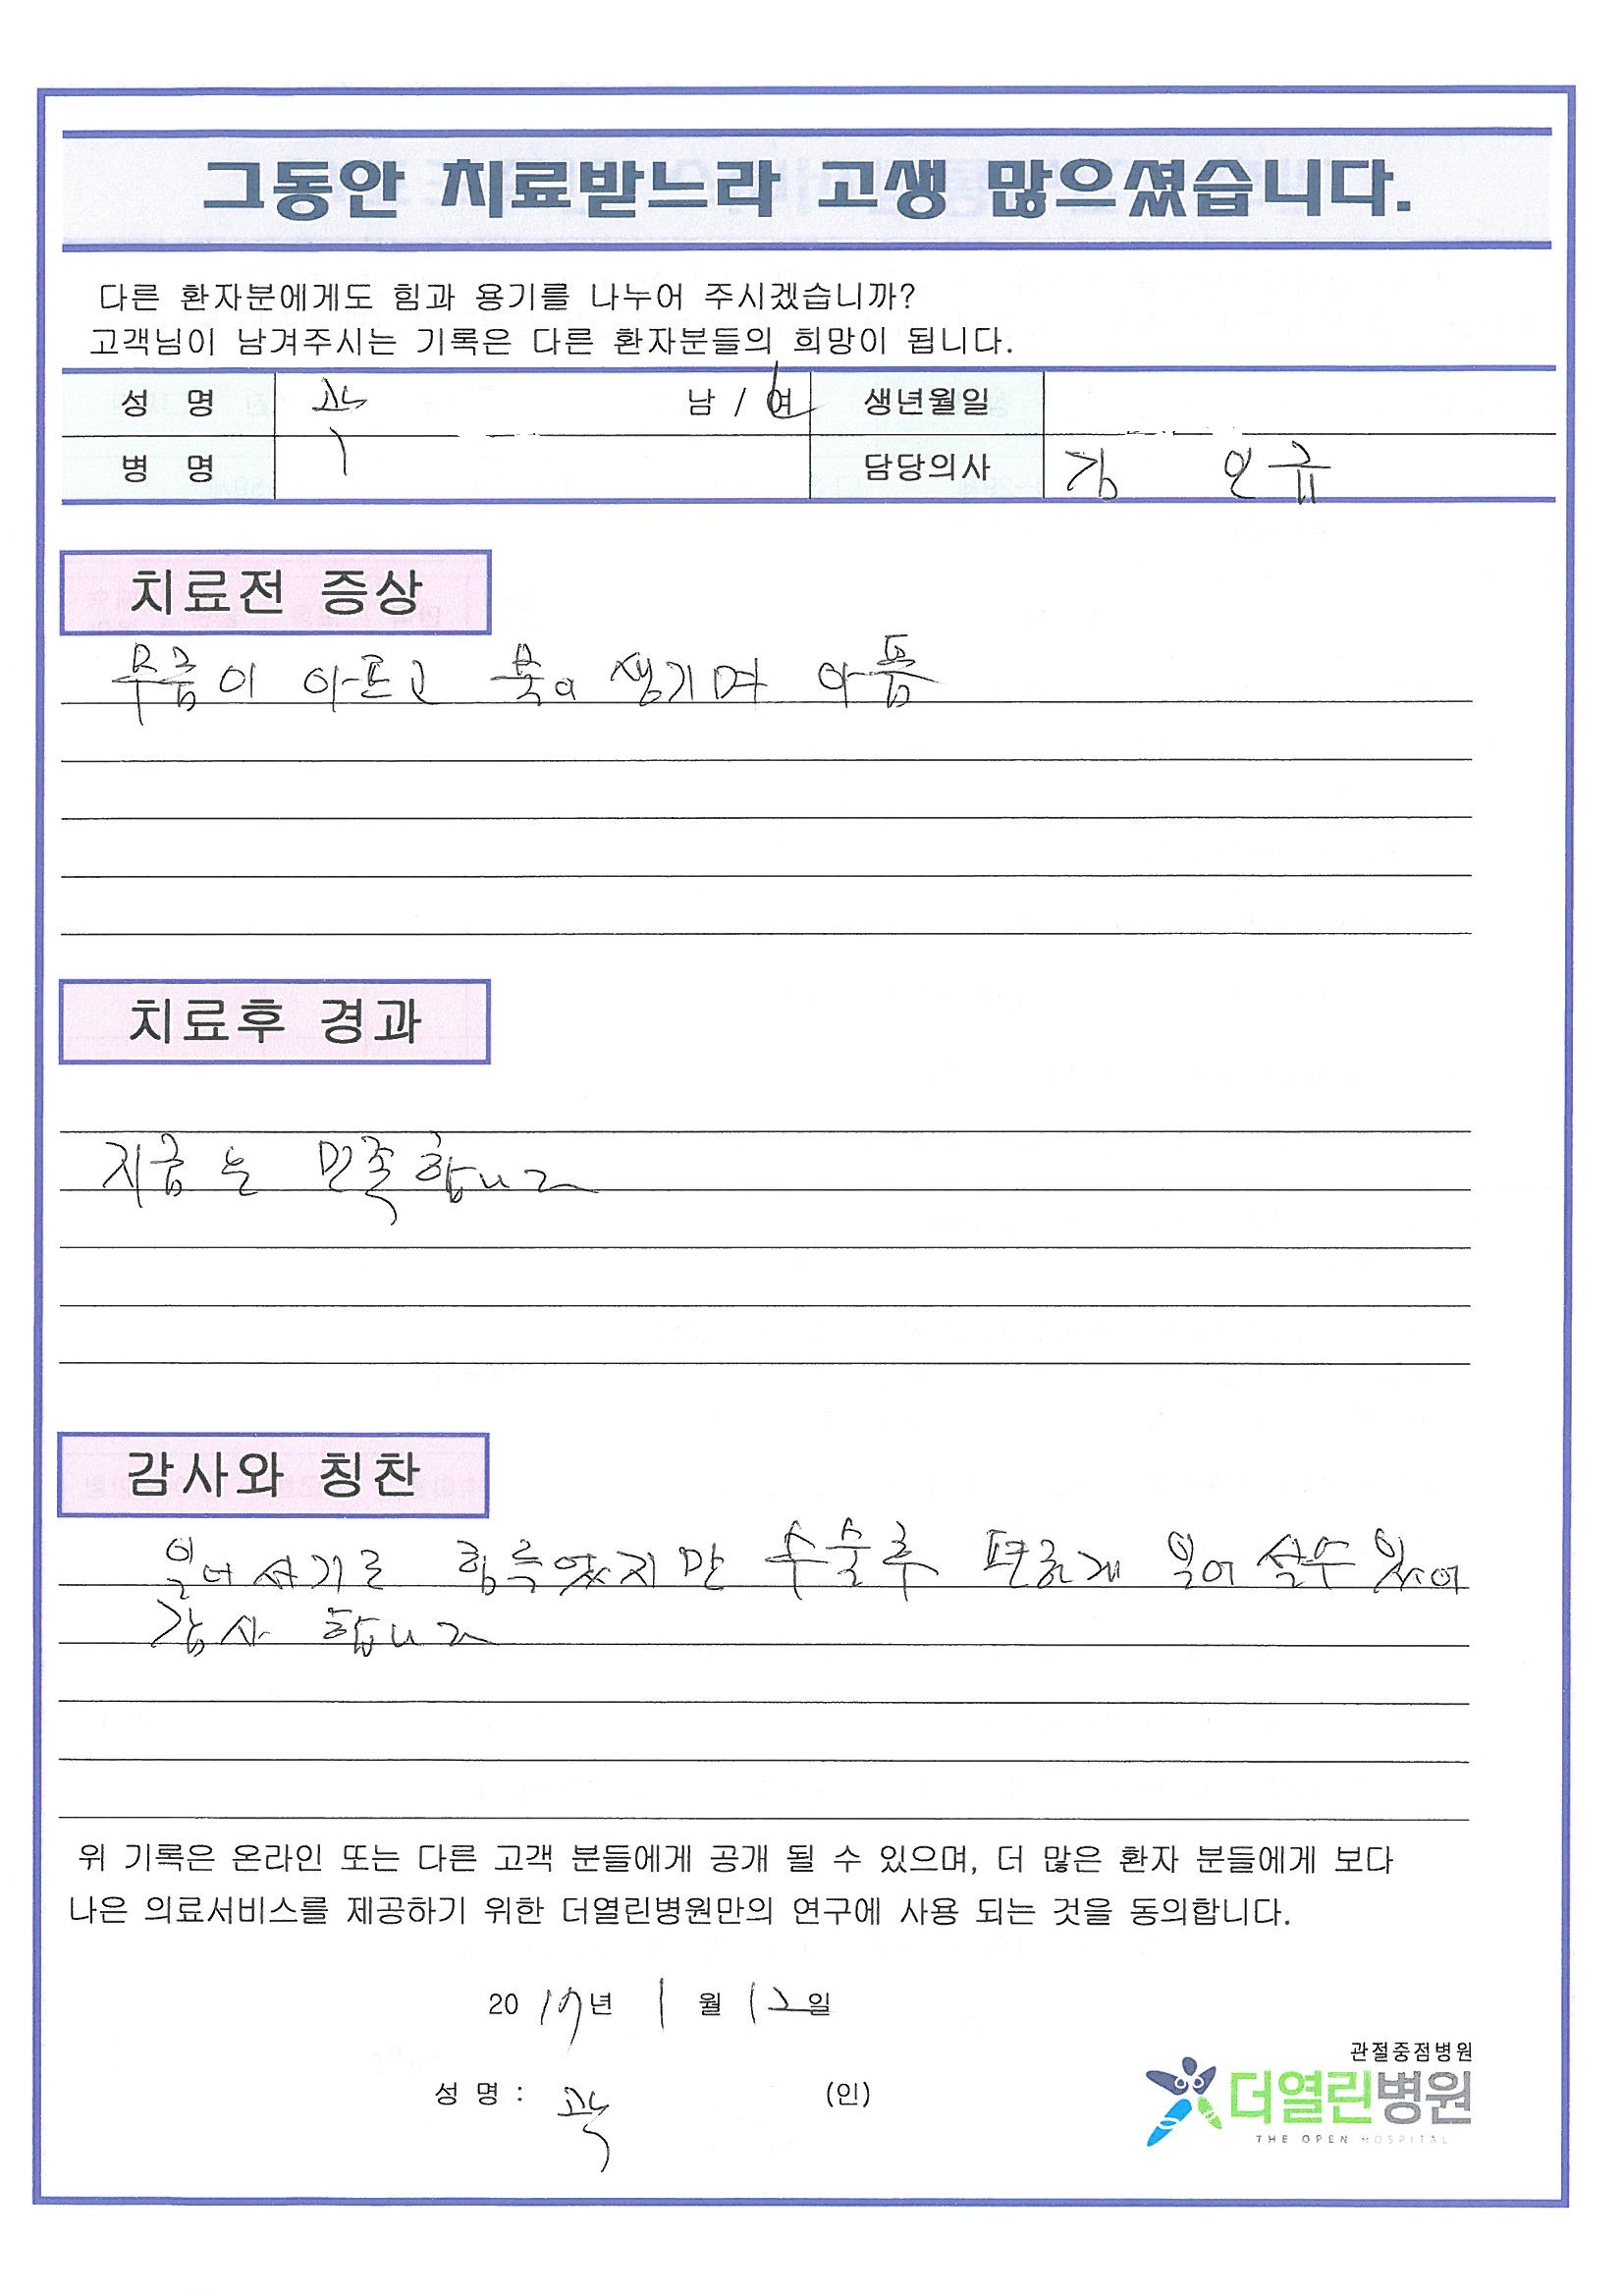 그동안 치료받느라 고생 많으셨습니다.
다른 환자분에게도 힘과 용기를 나누어 주시겠습니까?
고객님이 남겨주시는 기록은 다른 환자분들의 희망이 됩니다.
성 명 곽 남 / 여 생년월일
병 명 담당의사 김 인규
치료전 증상
무릎이 아프고 물이 생기며 아픔
치료후 경과
지금은 만족합니다
감사와 칭찬
일어서기도 힘들었지만 수술후 편하게 일어설수있어
감사 합니다
위 기록은 온라인 또는 다른 고객 분들에게 공개 될 수 있으며, 더 많은 환자 분들에게 보다
나은 의료서비스를 제공하기 위한 더열린병원만의 연구에 사용 되는 것을 동의합니다.
20 년 1 월 12 일
관절중점병원
성 명 : 곽 (인)
더열린병원
THE OPEN HOSPITAL